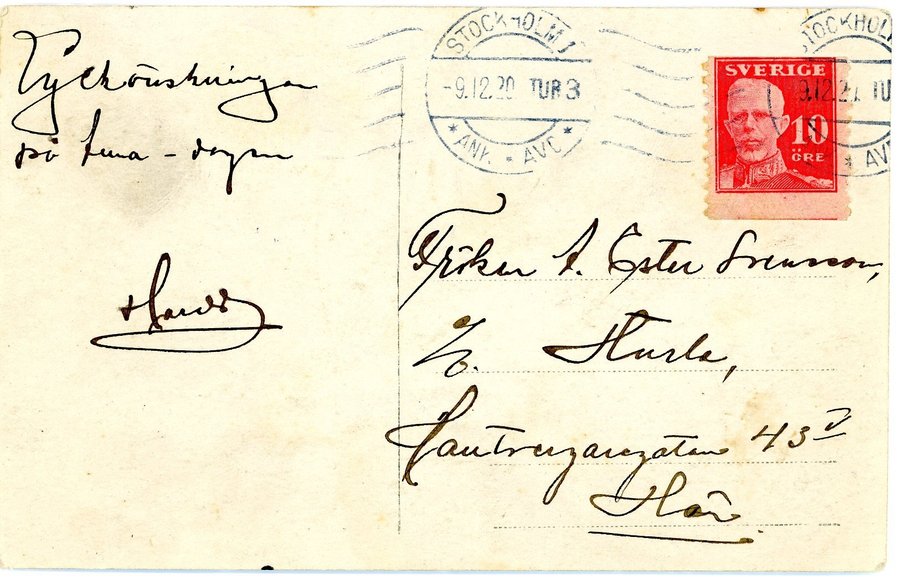 Lyckönskningar
på Anna-dagen
Harald
STOCKHOLM 1
-9.12.20 TUR 3
* ANK * AVG *
SVERIGE
10
ÖRE
STOCKHOLM
9.12.20 TU
* AV
Fröken A. Ester Svensson,
Hantverkaregatan 43
Här.